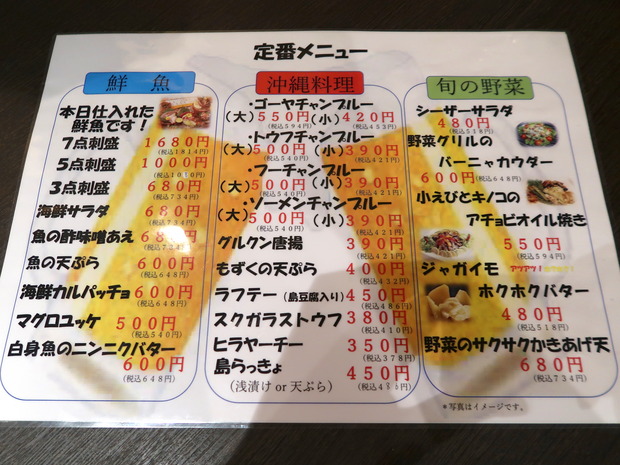 定番メニュー
鮮魚
本日仕入れた
鮮魚です！
7点刺盛 1680円
(税込1814円)
5点刺盛 1000円
(税込1080円)
3点刺盛 680円
(税込734円)
海鮮サラダ 680円
(税込734円)
魚の酢味噌あえ 680円
(税込734円)
魚の天ぷら 600円
(税込648円)
海鮮カルパッチョ 600円
(税込648円)
マグロユッケ 500円
(税込540円)
白身魚のニンニクバター
600円
(税込648円)
沖縄料理
・ゴーヤチャンプルー
(大)550円 (小)420円
(税込594円) (税込453円)
・トウフチャンプルー
(大)500円 (小)390円
(税込540円) (税込421円)
・フーチャンプルー
(大)500円 (小)390円
(税込540円) (税込421円)
・ソーメンチャンプルー
(大)500円 (小)390円
(税込540円) (税込421円)
グルクン唐揚 390円
(税込421円)
もずくの天ぷら 400円
(税込432円)
ラフテー(島豆腐入り) 450円
(税込486円)
スクガラストウフ 380円
(税込410円)
ヒラヤーチー 350円
(税込378円)
島らっきょ 450円
(浅漬け or 天ぷら) (税込486円)
旬の野菜
シーザーサラダ
480円
(税込518円)
野菜グリルの
バーニャカウダー
600円(税込648円)
小えびとキノコの
アチョビオイル焼き
550円
(税込594円)
ジャガイモ アツアツ！
ホクホクバター
480円
(税込518円)
野菜のサクサクかきあげ天
680円
(税込734円)
＊写真はイメージです。